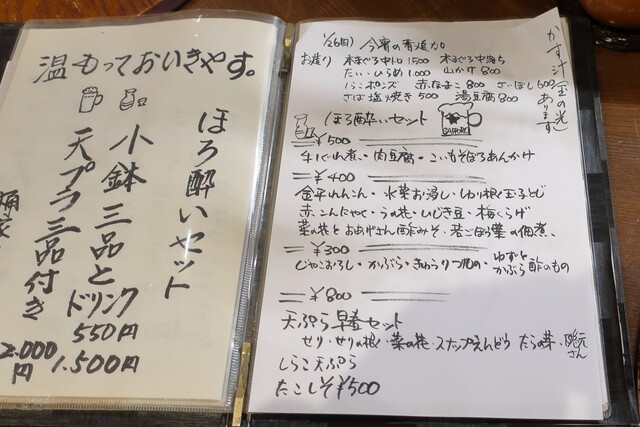 温もっておいきやす。
ほろ酔いセット
小鉢三品と
天プラ三品付き
ドリンク
550円
1.500円
2.000円
1/26(日) 今宵の
お造り 本まぐろ中トロ1500 本まぐろ中落ち
たい・ひらめ1000 山かけ800
てっぴポンズ 赤なまこ800 さっぽし600
さば塩焼き500 湯豆腐800
かす汁(金の光)あります
ほろ酔いセット
SAPPORO
¥500
牛しぐれ煮・肉豆腐・こいもそぼろあんかけ
¥400
金平れんこん・水菜お浸し・せり根く玉子とじ
赤こんにゃく・うの花・ひじき豆・梅くらげ
菜の花とおあげさん酢みそ・若ごぼう葉の佃煮、
¥300
じゃこおろし・かぶら・きゅうり
ゆずとかぶら酢のもの
¥800
天ぷら早春セット
せり・せりの根く・菜の花・スナップえんどう たらの芽、隠元さん
しらこ天ぷら
たこしそ¥500